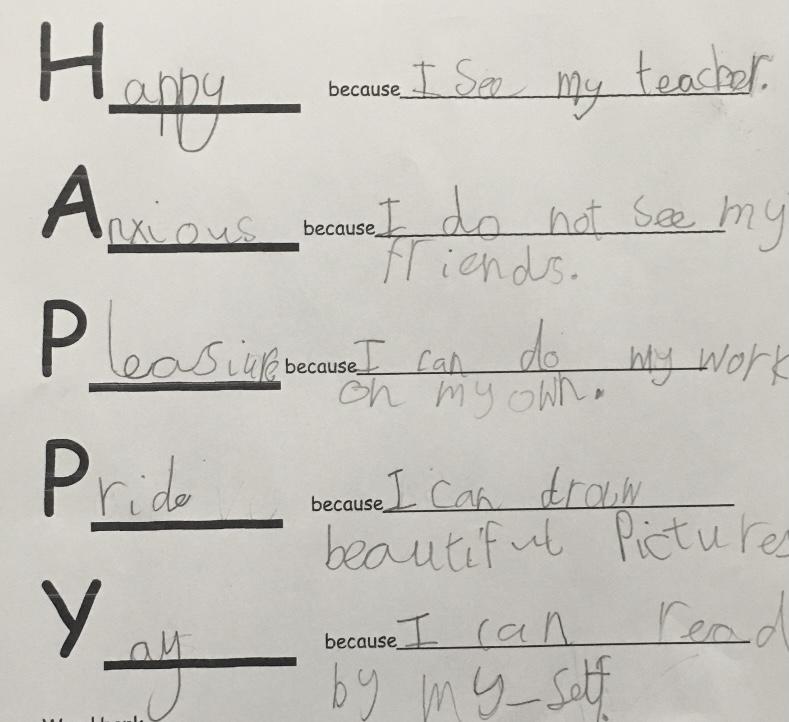 Happy because I See my teacher.
Anxious because I do not see my
friends.
Pleasiure because I can do my work
on my own.
Pride because I can draw
beautiful Pictures
Yay because I can read
by my_self.